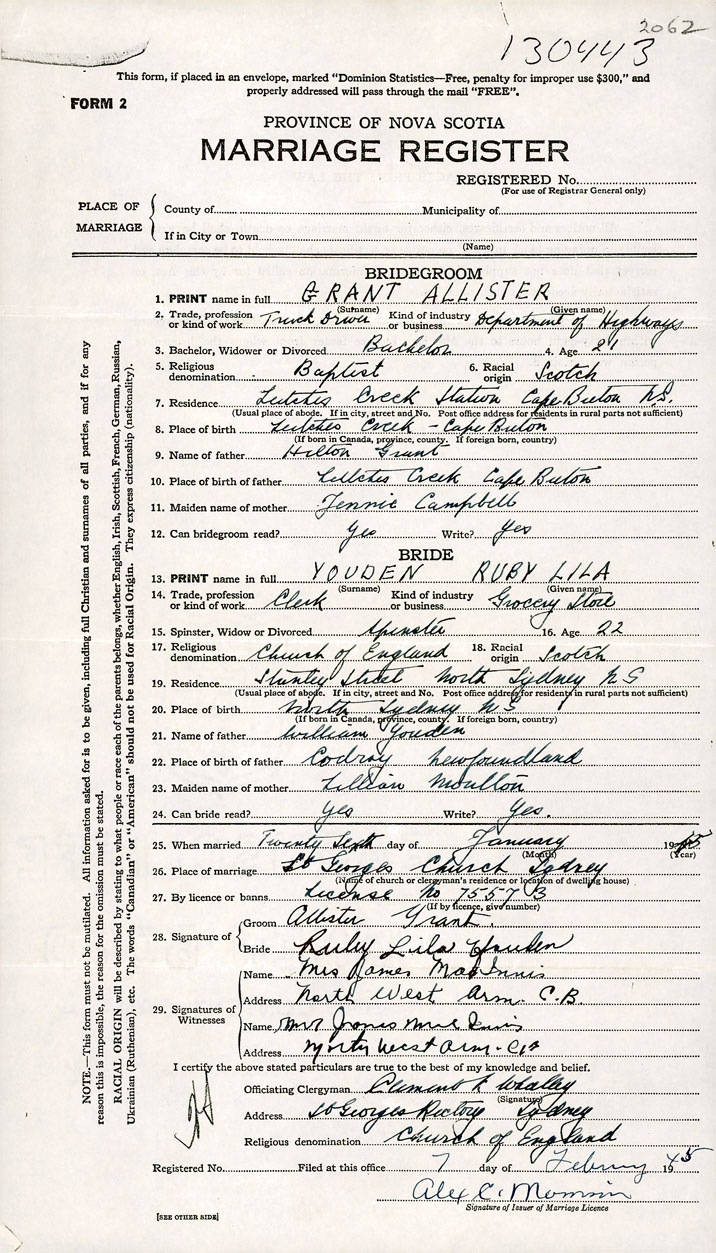 2062
130443
This form, if placed in an envelope, marked "Dominion Statistics—Free, penalty for improper use $300," and
properly addressed will pass through the mail "FREE".
FORM 2
PROVINCE OF NOVA SCOTIA
MARRIAGE REGISTER
REGISTERED No.
(For use of Registrar General only)
PLACE OF MARRIAGE
County of Municipality of
If in City or Town
(Name)
BRIDEGROOM
1. PRINT name in full GRANT ALLISTER
(Surname) (Given name)
2. Trade, profession or kind of work Truck Driver Kind of industry or business Department of Highways
3. Bachelor, Widower or Divorced Bachelor 4. Age 21
5. Religious denomination Baptist 6. Racial origin Scotch
7. Residence Leitches Creek Station Cape Breton N.S.
(Usual place of abode. If in city, street and No. Post office address for residents in rural parts not sufficient)
8. Place of birth Leitches Creek - Cape Breton
(If born in Canada, province, county. If foreign born, country)
9. Name of father Hilton Grant
10. Place of birth of father Leitches Creek Cape Breton
11. Maiden name of mother Jennie Campbell
12. Can bridegroom read? Yes Write? Yes
BRIDE
13. PRINT name in full YOUDEN RUBY LILA
(Surname) (Given name)
14. Trade, profession or kind of work Clerk Kind of industry or business Grocery Store
15. Spinster, Widow or Divorced Spinster 16. Age 22
17. Religious denomination Church of England 18. Racial origin Scotch
19. Residence Street North Sydney N S
(Usual place of abode. If in city, street and No. Post office address for residents in rural parts not sufficient)
20. Place of birth North Sydney N S
(If born in Canada, province, county. If foreign born, country)
21. Name of father William Youden
22. Place of birth of father Codroy Newfoundland
23. Maiden name of mother Lillian Moulton
24. Can bride read? Yes Write? Yes.
25. When married Twenty day of January 1945
(Month) (Year)
26. Place of marriage St Georges Church Sydney
(Name of church or clergyman's residence or location of dwelling house)
27. By licence or banns License No 7557 B
(If by licence, give number)
28. Signature of
Groom Allister Grant
Bride Ruby Lila Youden
29. Signatures of Witnesses
Name Mrs James MacInnis
Address North West Arm. C.B.
Name Mr James MacInnis
Address North West Arm - C.B
I certify the above stated particulars are true to the best of my knowledge and belief.
Officiating Clergyman
(Signature)
Address St Georges Rectory Sydney
Religious denomination Church of England
Registered No. Filed at this office 7 day of February 1945
Alex C.
Signature of Issuer of Marriage Licence
[SEE OTHER SIDE]
NOTE.—This form must not be mutilated. All information asked for is to be given, including full Christian and surnames of all parties, and if for any
reason this is impossible, the reason for the omission must be stated.
RACIAL ORIGIN will be described by stating to what people or race each of the parents belongs, whether English, Irish, Scottish, French, German, Russian,
Ukrainian (Ruthenian), etc. The words "Canadian" or "American" should not be used for Racial Origin. They express citizenship (nationality).